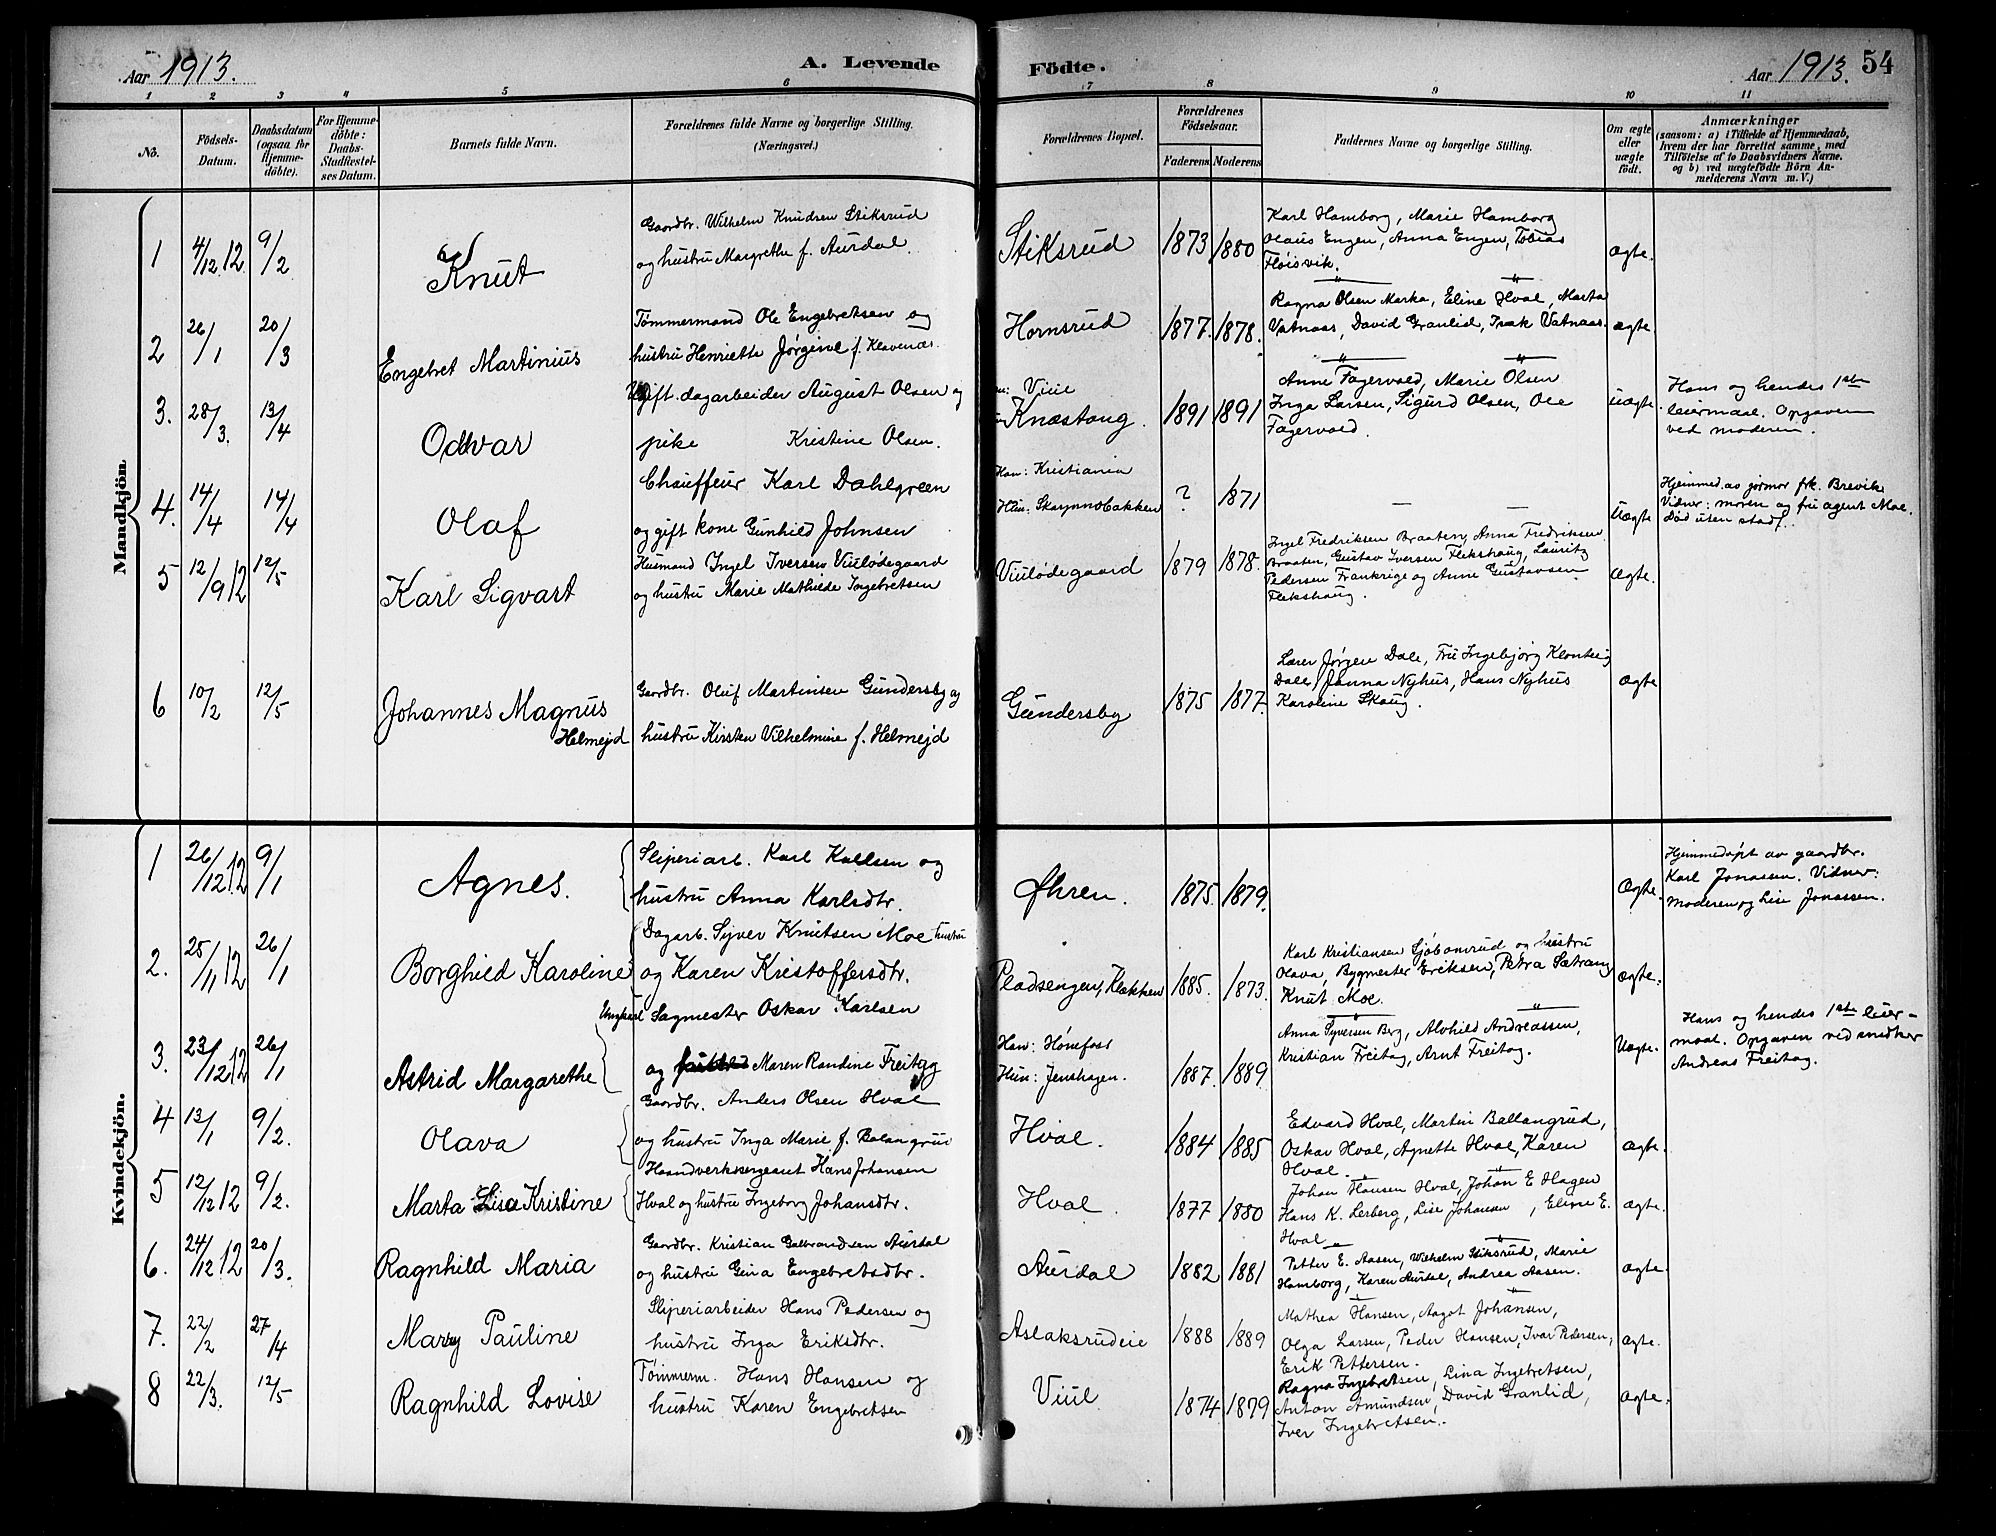 Aar 1913.
A. Levende Födte.
Aar 1913. 54
1 2 3 4 5 6 7 8 9 10 11
No.
Födsels-Datum.
Daabsdatum (ogsaa for Hjemme-döbte).
For Hjemme-döbte: Daabs-Stadfæstel-ses Datum.
Barnets fulde Navn.
Forældrenes fulde Navne og borgerlige Stilling.
(Næringsvei.)
Forældrenes Bopæl.
Forældrenes Födselsaar.
Faderens Moderens
Faddernes Navne og borgerlige Stilling.
Om ægte eller uægte födt.
Anmærkninger
(saasom: a) i Tilfælde af Hjemmedaab, hvem der har forrettet samme, med Tilföielse af to Daabsvidners Navne. og b) ved uægtefödte Börn Anmelderens Navn m. V.)
Mandkjön.
1 4/12.12 9/2 Knut
Gaardbr. Wilhelm Knudsen Stiksrud
og hustru Margrethe f. Aurdal.
Stiksrud 1873 1880
Karl Hamborg, Marie Hamborg
Olaus Engen, Anna Engen, Tobias
Fløisvik.
Ægte.
2 26/1 20/3 Engebret Martinius
Tømmermand Ole Engebretsen og
hustru Henriette Jørgine f. Klavenæs.
Hornsrud 1877. 1878.
Ragna Olsen Marka, Eline Hval, Marta
Vatnaas, David Granlid, Isak Vatnaas.
Ægte.
3. 28/3. 13/4 Odvar
Ugift dagarbeider August Olsen og
pike Kristine Olsen.
Viul
Knæstang. 1891 1891
Anne Fagervold, Marie Olsen
Inga Larsen, Sigurd Olsen, Ole
Fagervold.
Uægte.
Hans og hendes 1ste
leiermaal. Opgaven
ved moderen.
4. 14/4 14/4 Olaf
Chauffeur Karl Dahlgreen
og gift kone Gunhild Johnsen
Han: Kristiania
Hun: ? 1871
— —
Uægte
Hjemmed. av jormor frk. Brevik
Vidner: moren og fru agent Moe.
Død uten stadf.
5 12/9 12 12/5 Karl Sigvart
Husmand Ingel Iversen Viulødegaard
og hustru Marie Mathilde Ingebretsen
Viulødegaard 1879 1878.
Ingel Fredriksen Braaten, Anna Fredriksen
Braaten, Gustav Iversen Flekshaug, Lauritz
Pedersen Frankrige og Anne Gustavsen
Flekshaug.
Ægte.
6 10/2 12/5 Johannes Magnus
Helmejd
Gaardbr. Oluf Martinsen Gundersby og
hustru Kirsten Vilhelmine f. Helmejd
Gundersby 1875 1877.
Lærer Jørgen Dale, Fru Ingebjørg
Dale, Janna Nyhus, Hans Nyhus
Karoline Skaug.
Ægte
Kvindekjön.
1 26/12.12 9/1 Agnes.
Sliperiarb. Karl Kallsen og
hustru Anna Karlsdtr.
Øhren. 1875. 1879.
Ægte.
Hjemmedøpt av gaardbr.
Karl Jonassen. Vidner:
Moderen og Lise Jonassen.
2. 25/11 12 26/1 Borghild Karoline
Dagarb. Syver Knutsen Moe hustru
og Karen Kristoffersdtr.
Pladsengen, Klækken 1885. 1873.
Karl Kristiansen Sjøbomrud og hustru
Olava, Bygmester Eriksen, Petra Sætrang
Knut Moe.
Ægte.
3. 23/12.12 26/1 Astrid Margarethe
Ungkarl Sagmester Oskar Karlsen
og Maren Randine Freitag
Han: Hønefoss
Hun: Jenshagen. 1887. 1889.
Anna Syversen Berg, Alvhild Andreassen,
Kristian Freitag, Arnt Freitag.
Uægte.
Hans og hendes 1ste leier-
maal. Opgaven ved snedker
Andreas Freitag.
4 13/1 9/2. Olava
Gaardbr. Anders Olsen Hval
og hustru Inga Marie f. Balangrud
Hval. 1884 1885
Edvard Hval, Martin Ballangrud,
Oskar Hval, Agnette Hval, Karen
Hval.
Ægte.
5 12/12 12 9/2. Marta Lise Kristine
Haandverkssergeant Hans Johansen
Hval og hustru Ingeborg Johansdtr.
Hval. 1877 1880
Johan Hansen Hval, Johan E. Hagen
Hans K. Lerberg, Lise Johansen, Eline E.
Hval
Ægte.
6. 24/12 12 20/3. Ragnhild Maria
Gaardbr. Kristian Gulbrandsen Aurdal
og hustru Gina Engebretsdtr.
Aurdal 1882 1881
Petter E. Aasen, Wilhelm Stiksrud, Marie
Hamborg, Karen Aurdal, Andrea Aasen.
Ægte.
7. 22/2 27/4 Mary Pauline
Sliperiarbeider Hans Pedersen og
hustru Inga Eriksdtr.
Aslaksrudeie 1888 1889
Mathea Hansen, Aagot Johansen,
Olga Larsen, Peder Hansen, Ivar Pedersen,
Erik Pettersen.
Ægte.
8 22/3. 12/5 Ragnhild Lovise
Tømmerm. Hans Hansen og
hustru Karen Engebretsen
Viul 1874 1879
Ragna Ingebretsen, Lina Ingebretsen,
Anton Amundsen, David Granlid,
Iver Ingebretsen.
Ægte.